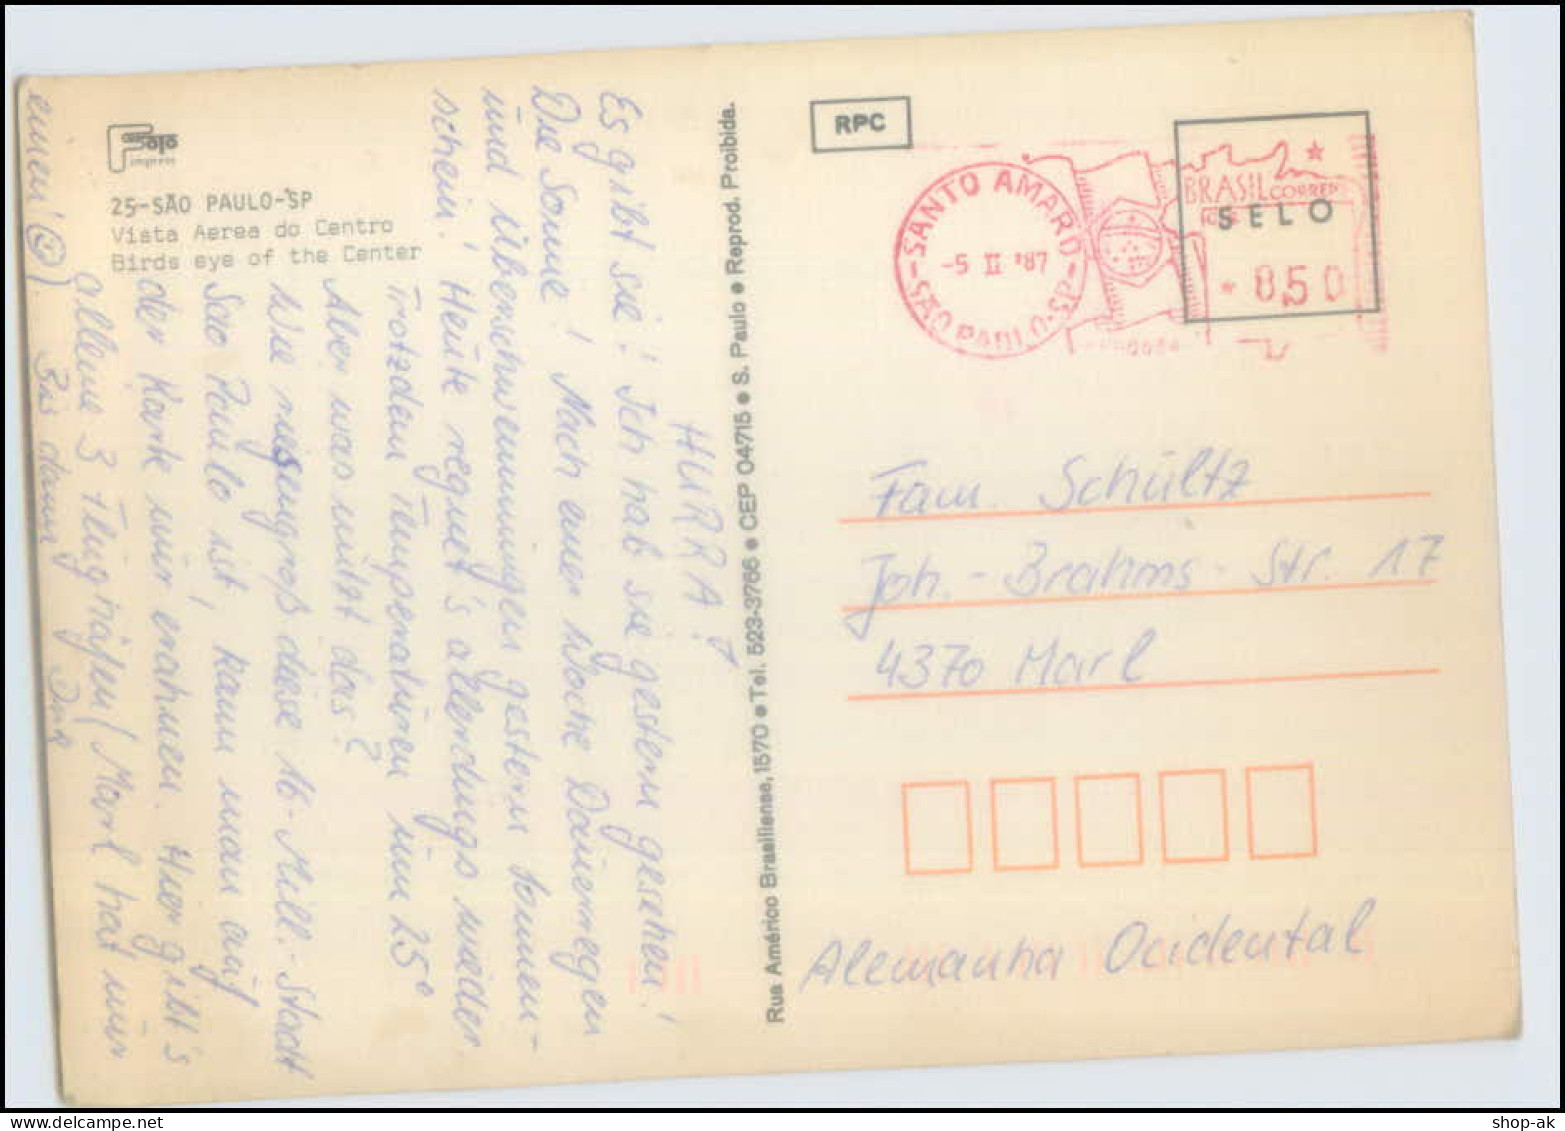 HURRA!
Es gibt sie! Ich hab sie gestern gesehen!
Die Sonne! Nach einer Woche Dauerregen
und Überschwemmungen gestern Sonnen-
schein! Heute regnet's allerdings wieder.
Trotzdem Temperaturen um 25°
Aber was nützt das?
Wie riesengroß diese 16-Mill.-Stadt
Sao Paulo ist, kann man auf
der Karte nur erahnen. Hier gibt's
alleine 3 Flughäfen (Marl hat nur
einen!). Bis dann
Foto
impress
25-SÃO PAULO-SP
Vista Aerea do Centro
Birds eye of the Center
Rua Américo Brasiliense, 1570 ● Tel. 523-3766 ● CEP 04715 ● S. Paulo ● Reprod. Proibida.
RPC
SANTO AMARO
-5 II '87
SÃO PAULO-SP
BRASIL CORREIO
SELO
* 8,50
Fam. Schültz
Joh.-Brahms-Str. 17
4370 Marl
Alemanha Ocidental
shop-ak